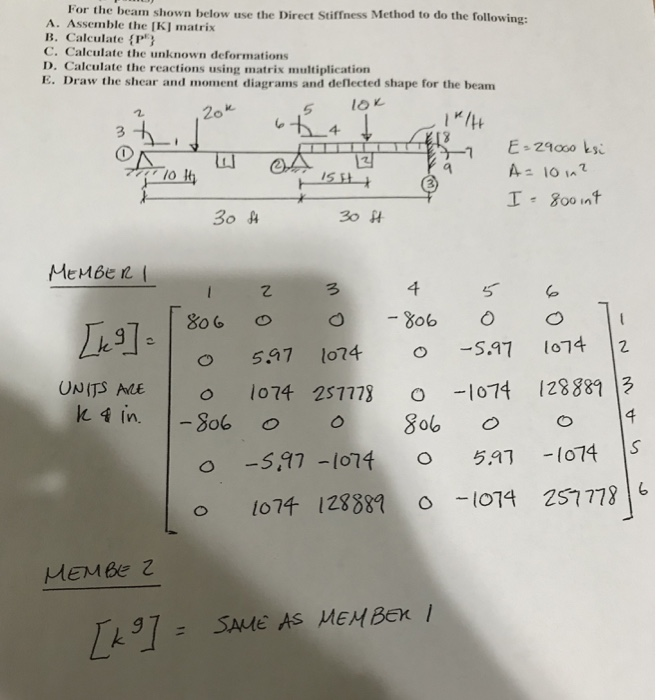 For the beam shown below use the Direct Stiffness Method to do the following:
A. Assemble the [K] matrix
B. Calculate {Pᶠ}
C. Calculate the unknown deformations
D. Calculate the reactions using matrix multiplication
E. Draw the shear and moment diagrams and deflected shape for the beam
2 20ᵏ 5 10ᵏ 1ᵏ/ft
3 1 6 4 8 7 9
① [1] ② [2] ③
10 ft 15 ft
30 ft 30 ft
E = 29000 ksi
A = 10 in²
I = 800 in⁴
MEMBER 1
1 2 3 4 5 6
[kᵍ] =
806 0 0 -806 0 0 1
0 5.97 1074 0 -5.97 1074 2
UNITS ARE
k & in.
0 1074 257778 0 -1074 128889 3
-806 0 0 806 0 0 4
0 -5.97 -1074 0 5.97 -1074 5
0 1074 128889 0 -1074 257778 6
MEMBE 2
[kᵍ] = SAME AS MEMBER 1